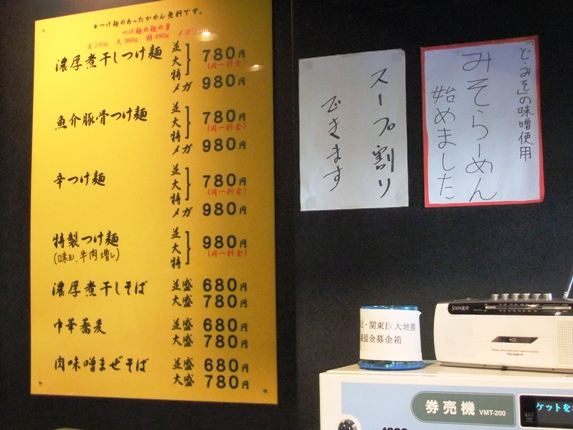 ※つけ麺のあったかめん無料です。
つけ麺の麺の量
大 360g 特 480g
濃厚煮干しつけ麺 並 大 特 780円 (同一料金)
メガ 980円
魚介豚骨つけ麺 並 大 特 780円 (同一料金)
メガ 980円
辛つけ麺 並 大 特 780円 (同一料金)
メガ 980円
特製つけ麺 並 大 特 980円 (同一料金)
(味玉、牛肉増し)
濃厚煮干しそば 並盛 680円
大盛 780円
中華蕎麦 並盛 680円
大盛 780円
肉味噌まぜそば 並盛 680円
大盛 780円
スープ割り
できます
ど・みそ」の味噌使用
みそらーめん
始めました
・関東巨大地震
援金募金箱
券売機 VMT-200
ケットを